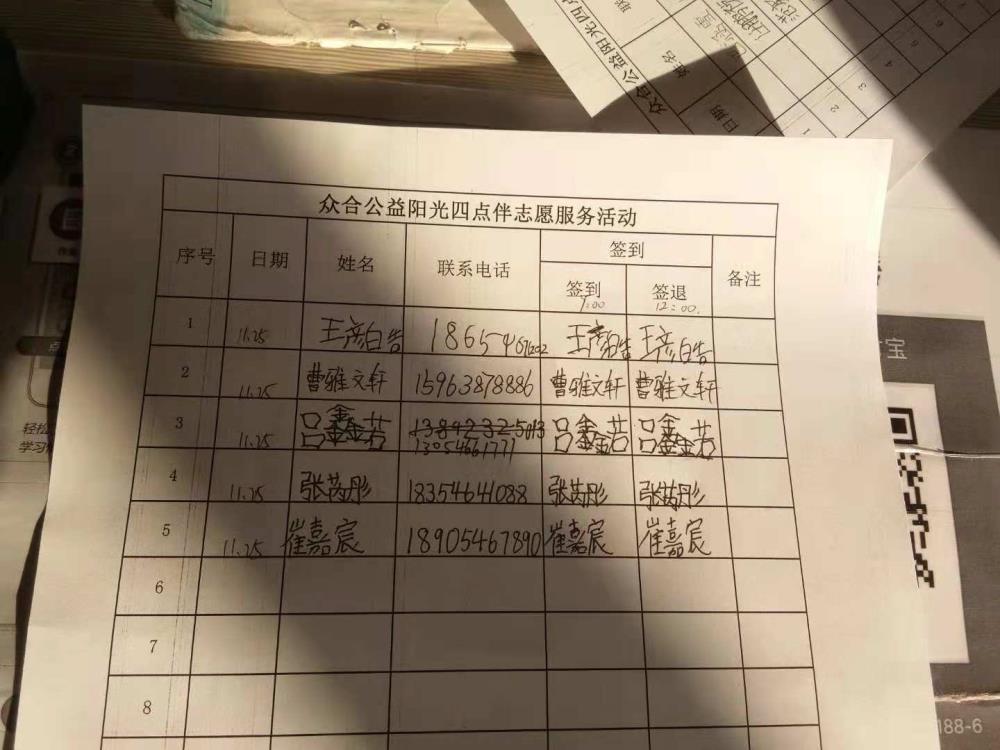 众合公益阳光四点伴志愿服务活动
序号 日期 姓名 联系电话 签到 备注
签到 签退
7:00 12:00.
1 11.25 王彦皓 1865467202 王彦皓 王彦皓
2 11.25 曹雅文轩 15963878886 曹雅文轩 曹雅文轩
3 11.25 吕鑫若 13054667771 吕鑫若 吕鑫若
4 11.25 张芮彤 18354641088 张芮彤 张芮彤
5 11.25 崔嘉宸 18905467890 崔嘉宸 崔嘉宸
6
7
8
众合公益阳光四点
日期 姓名 联
1
2
3
4
5
6
宝
轻松
学习
188-6